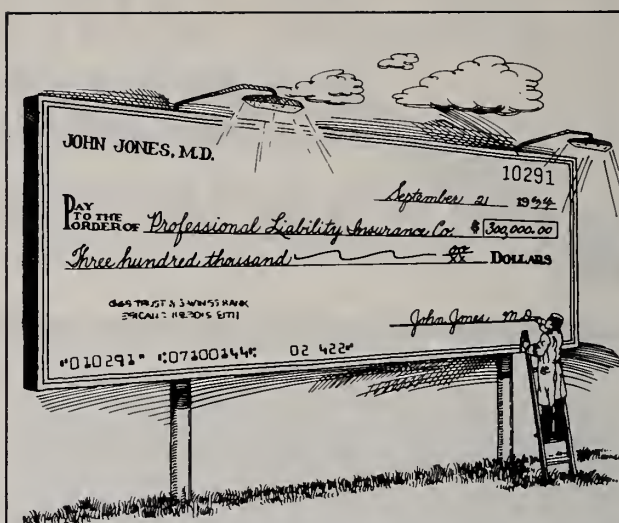 JOHN JONES, M.D.
10291
September 21 19
PAY TO THE ORDER OF Professional Liability Insurance Co. $ 300,000.00
Three hundred thousand XX DOLLARS
TRUST &
John Jones, M.D.
"010291" 07100144 02 422"